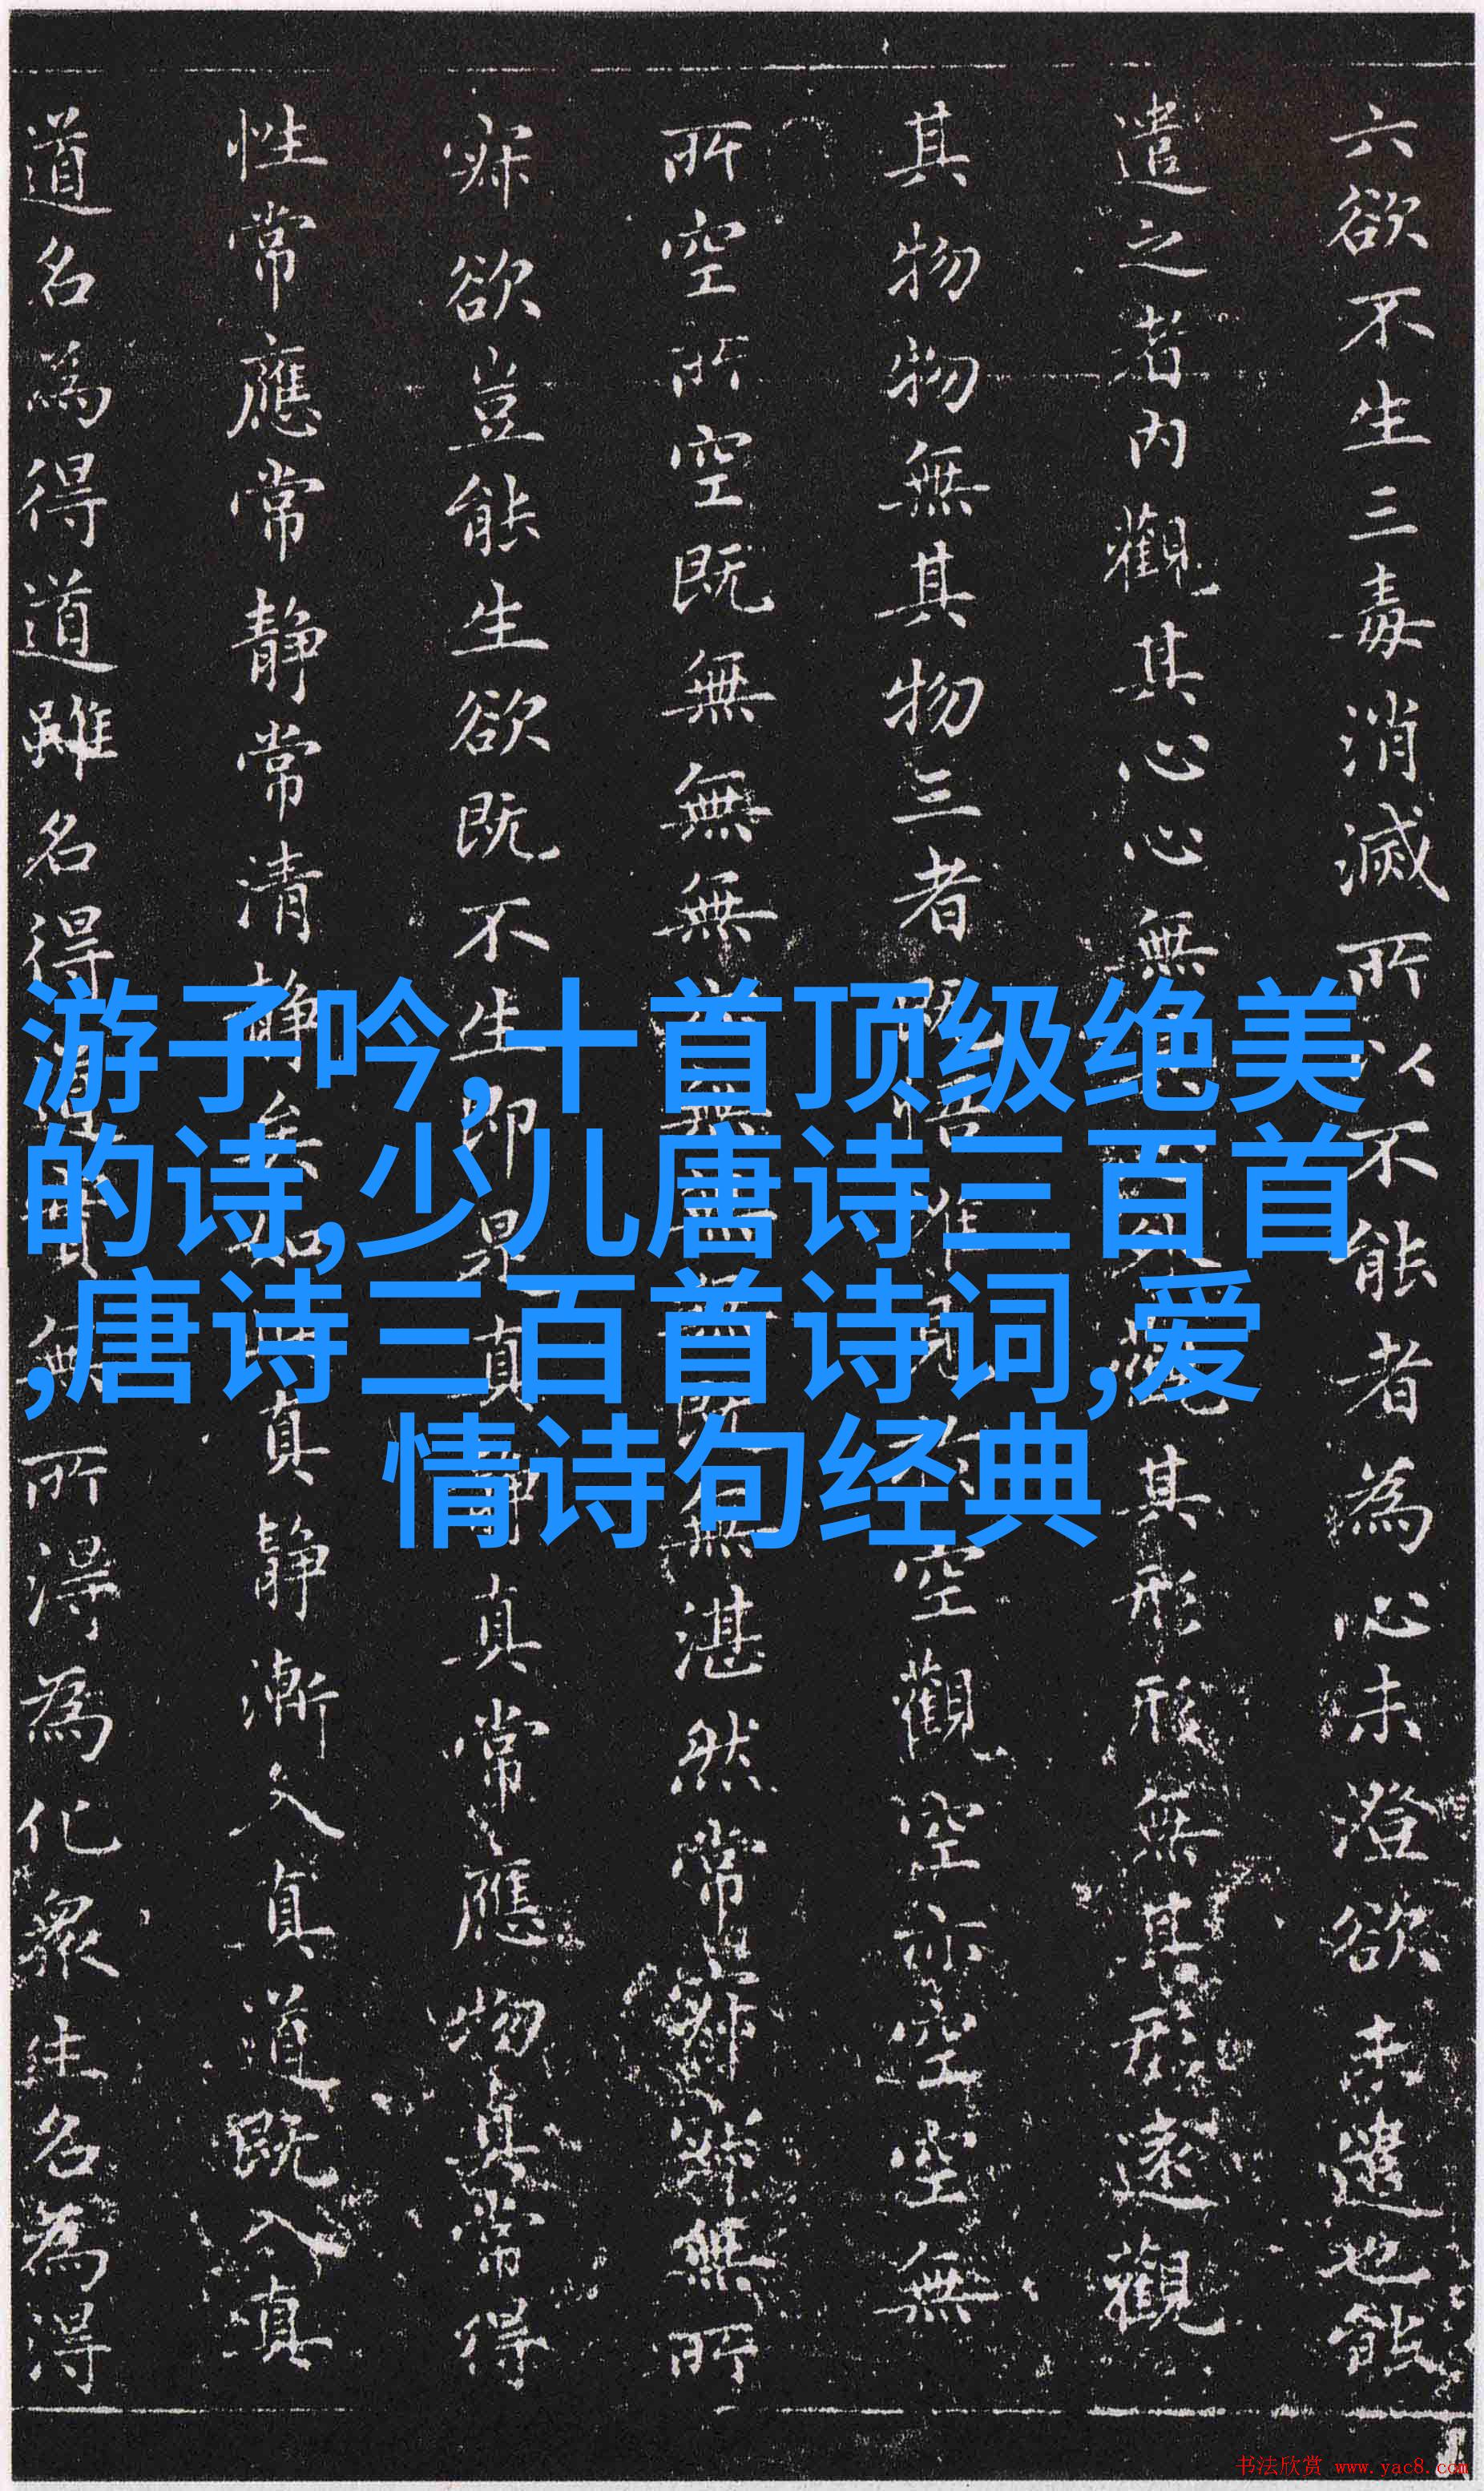 六欲不生三毒消滅所以不能者為心未澄欲未遣也能
遣之者內觀其心心無其心外觀其形形無其形遠觀
其物物無其物三者既悟唯見於空觀空亦空空無
所空所空既無無無亦無無無既無湛然常寂寂無所
寂欲豈能生欲既不生即是真靜真常應物真常得
性常應常靜常清靜矣如此真靜漸入真道既入真
道名為得道雖名得道實無所得為化眾生名為得
游子吟,十首顶级绝美
的诗,少儿唐诗三百首
,唐诗三百首诗词,爱
情诗句经典
书法欣赏 www.yac8.com